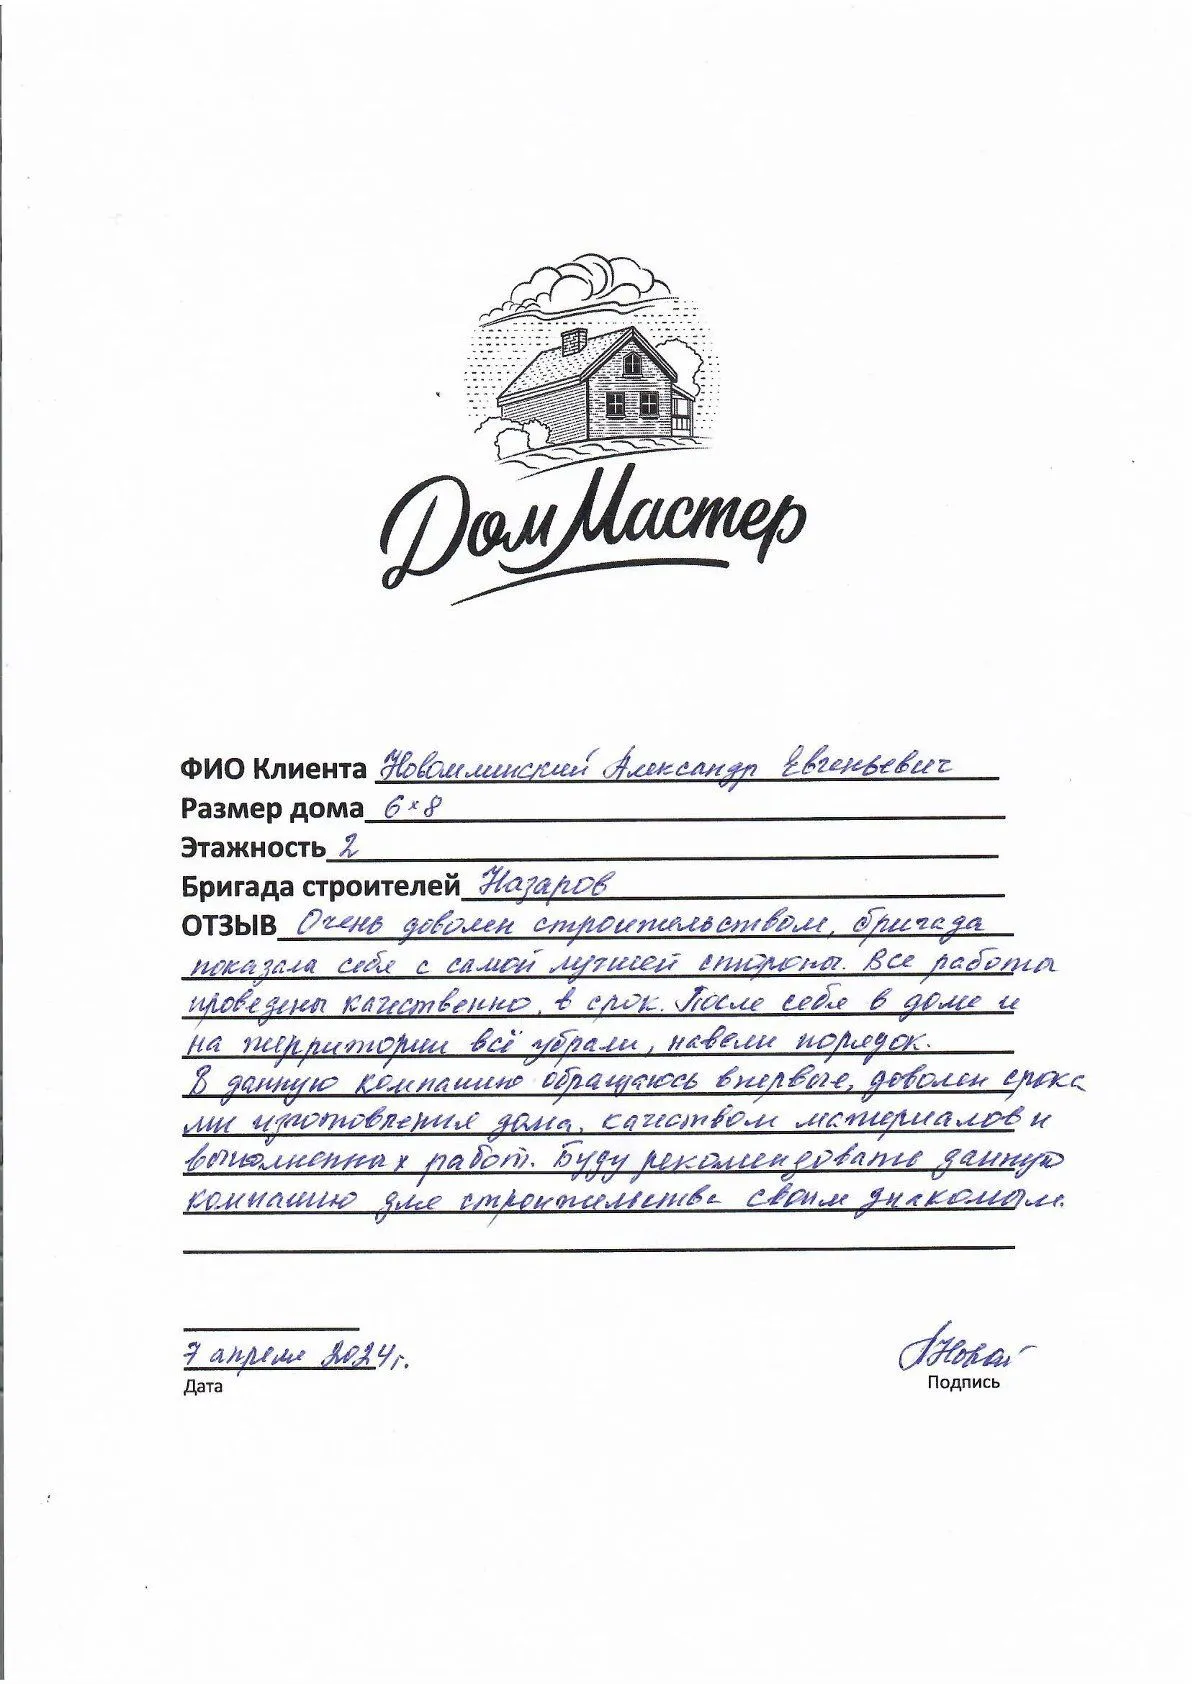 ДомМастер
ФИО Клиента Новоминский Александр Евгеньевич
Размер дома 6×8
Этажность 2
Бригада строителей Назаров
ОТЗЫВ Очень доволен строительством, бригада
показала себя с самой лучшей стороны. Все работы
проведены качественно, в срок. После себя в доме и
на территории всё убрали, навели порядок.
В данную компанию обращаюсь впервые, доволен срока
ми изготовления дома, качеством материалов и
выполненных работ. Буду рекомендовать данную
компанию для строительства своим знакомым.
7 апреля 2024г.
Дата
Подпись